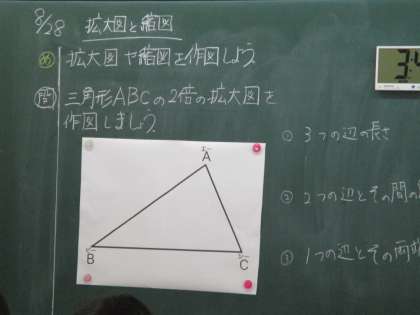 8/28 拡大図と縮図
め 拡大図や縮図を作図しよう。
問 三角形ABCの2倍の拡大図を
作図しましょう。
A
B
C
① 3つの辺の長さ
② 2つの辺とその間の
① 1つの辺とその両端